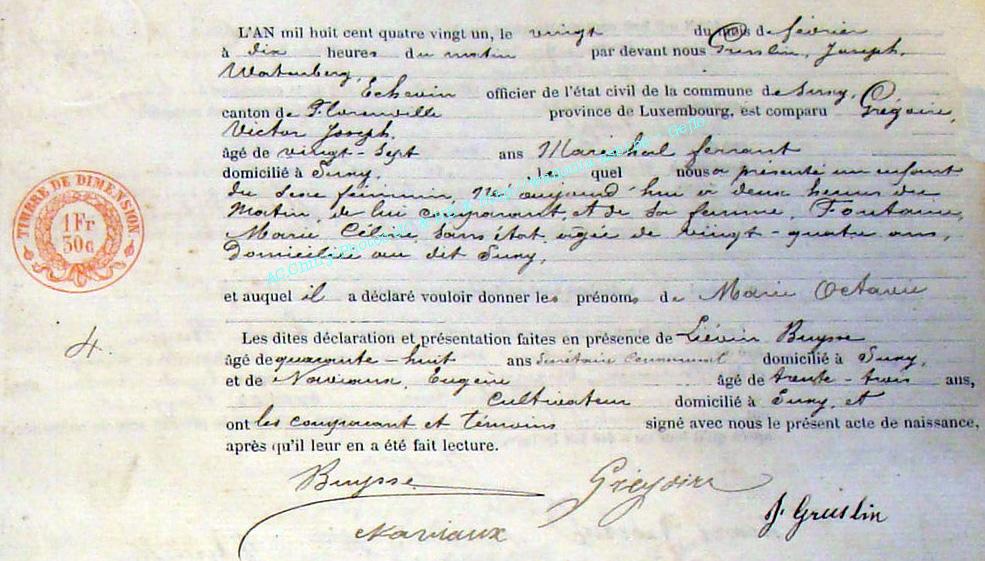 L'AN mil huit cent quatre vingt un, le vingt du mois de février
à dix heures du matin par devant nous Greslin, Joseph,
Watenberg,
Echevin officier de l'état civil de la commune de Suxy,
canton de Florenville province de Luxembourg, est comparu Grégoire,
Victor Joseph,
âgé de vingt-sept ans Maréchal ferrant
domicilié à Suxy, le quel nous a présenté un enfant
du sexe féminin, né aujourd'hui à deux heures du
Matin, de lui comparant, et de sa femme, Fontaine,
Marie Céline, sans état, agée de vingt-quatre ans,
Domiciliée au dit Suxy,
et auquel il a déclaré vouloir donner les prénoms de Marie Octavie
Les dites déclaration et présentation faites en présence de Liévin Buysse
âgé de quarante-huit ans Secrétaire Communal domicilié à Suxy,
et de Naviaux, Eugène âgé de trente-trois ans,
Cultivateur domicilié à Suxy, et
ont les comparant et témoins signé avec nous le présent acte de naissance,
après qu'il leur en a été fait lecture.
Buysse Grégoire
Naviaux J. Greslin
TIMBRE DE DIMENSION
1 Fr
30 c
4.
AC.Chiny Photo